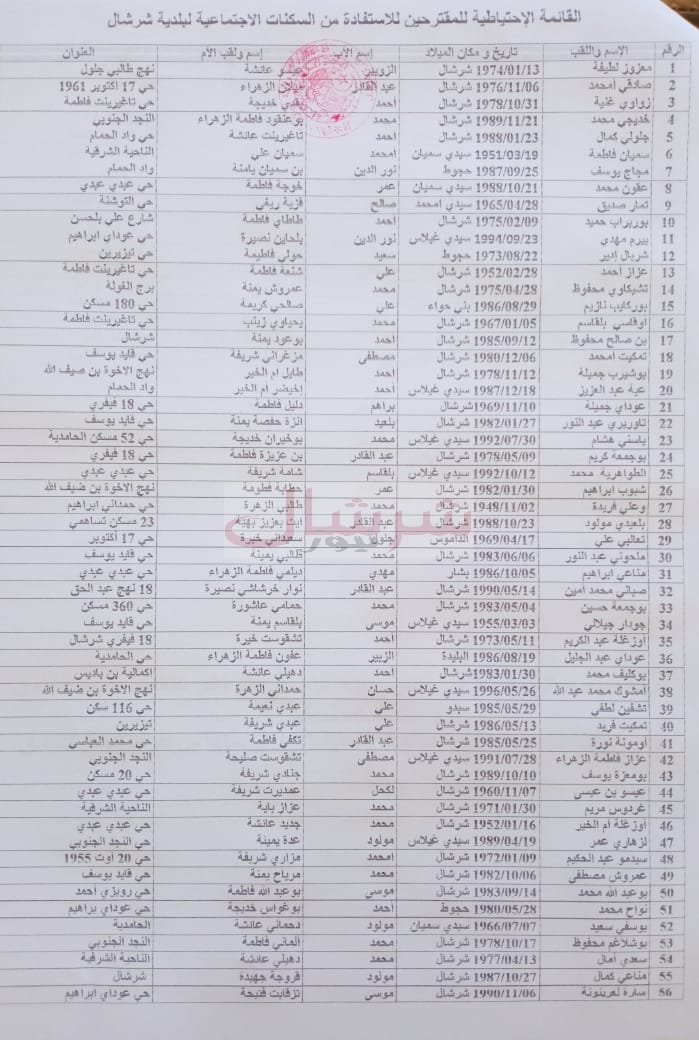 القائمة الإحتياطية للمقترحين للاستفادة من السكنات الاجتماعية لبلدية شرشال
الرقم الاسم واللقب تاريخ و مكان الميلاد إسم الأب إسم ولقب الأم العنوان
1 معزوز لطيفة 1974/01/13 شرشال الزوبير عيسو عائشة نهج طالبي جلول
2 صادقي امحمد 1976/11/06 شرشال عبد القادر الزهراء حي 17 أكتوبر 1961
3 زواوي غنية 1978/10/31 شرشال أحمد خديجة حي تاغيرينت فاطمة
4 خديجي محمد 1989/11/21 شرشال محمد بوعنقود فاطمة الزهراء النجد الجنوبي
5 جلولي كمال 1988/01/23 شرشال أحمد تاغيرينت عائشة حي واد الحمام
6 سميان فاطمة 1951/03/19 سيدي سميان امحمد سميان علي الناحية الشرقية
7 مجاج يوسف 1987/09/25 حجوط نور الدين بن سميان يامنة واد الحمام
8 عفون محمد 1988/10/21 سيدي سميان عمر خوجة فاطمة حي عبدي عبدي
9 تمار صديق 1965/04/28 سيدي امحمد صالح قزية ريفي حي التوشنة
10 بوربراب حميد 1975/02/09 شرشال أحمد طاطاي فاطمة شارع علي بلحسن
11 بيرم مهدي 1994/09/23 سيدي غيلاس نور الدين بلحاين نصيرة حي عوداي ابراهيم
12 شربال إدير 1973/08/22 حجوط سعيد حولي فاطيمة حي تيزيرين
13 عزاز أحمد 1952/02/28 شرشال علي شنعة فاطمة حي تاغيرينت فاطمة
14 تشيكاوي محفوظ 1975/04/28 شرشال محمد عمروش يمنة برج الغولة
15 بوركايب نازيم 1986/08/29 بني حواء علي صالحي كريمة حي 180 مسكن
16 اوقاسي بلقاسم 1967/01/05 شرشال محمد يحياوي زينب حي تاغيرينت فاطمة
17 بن صالح محفوظ 1985/09/12 شرشال أحمد بوعود يمنة شرشال
18 تمكيت امحمد 1980/12/06 شرشال مصطفى مزغراني شريفة حي قايد يوسف
19 بوشيرب جميلة 1978/11/12 شرشال أحمد طابل ام الخير نهج الاخوة بن ضيف الله
20 عبة عبد العزيز 1987/12/18 سيدي غيلاس أحمد اخيضر أم الخير واد الحمام
21 عوداي جميلة 1969/11/10شرشال براهم دليل فاطمة حي 18 فيفري
22 تاوريري عبد النور 1982/01/27 شرشال بلعيد انزة حفصة يمنة حي قايد يوسف
23 ياسني هشام 1992/07/30 سيدي غيلاس محمد بوخيران خديجة حي 52 مسكن الحامدية
24 بوجمعة كريم 1978/05/09 شرشال عبد القادر بن عزيزة فاطمة حي 18 فيفري
25 الطواهرية محمد 1992/10/12 سيدي غيلاس بلقاسم شامة شريفة حي عبدي عبدي
26 شبوب ابراهيم 1982/01/30 شرشال عمر حطابة فطومة نهج الاخوة بن ضيف الله
27 وعلي فريدة 1948/11/02 شرشال محمد طالبي الزهرة حي حمداني ابراهيم
28 بلعيدي مولود 1988/10/23 شرشال عبد القادر ايت بعزيز بهتة 23 مسكن تساهمي
29 تعالبي علي 1969/04/17 الداموس جلول سعيداني خيرة حي 17 أكتوبر
30 ملحوني عبد النور 1983/06/06 شرشال محمد طالبي يمينة حي قايد يوسف
31 مناعي ابراهيم 1986/10/05 بشار مهدي ديلمي فاطمة الزهراء حي عبدي عبدي
32 صباني محمد أمين 1990/05/14 شرشال عبد القادر نوار خرشاشي نصيرة 18 نهج عبد الحق
33 بوجمعة حسين 1983/05/04 شرشال محمد حمامي عاشورة حي 360 مسكن
34 جودار جيلالي 1955/03/03 سيدي غيلاس موسى بلقاسم يمنة حي قايد يوسف
35 أوزغلة عبد الكريم 1973/05/11 شرشال أحمد تشقوست خيرة 18 فيفري شرشال
36 عوداي عبد الجليل 1986/08/19 البليدة الزبير عفون فاطمة الزهراء حي الحامدية
37 بوكليف محمد 1983/01/30شرشال أحمد دهيلي عائشة اكمالية بن باديس
38 أمشوك محمد عبد الله 1996/05/26 سيدي غيلاس حسان حمداني الزهرة نهج الاخوة بن ضيف الله
39 تشفين لطفي 1985/05/29 سبدو علي عبدي نعيمة حي 116 سكن
40 تمكيت فريد 1986/05/13 شرشال علي عبدي شريفة تيزيرين
41 أومونة نورة 1985/05/25 شرشال عبد القادر تكفي فاطمة حي محمد العباسي
42 عزاز فاطمة الزهراء 1991/07/28 سيدي غيلاس مصطفى تشقوست صليحة النجد الجنوبي
43 بومعزة يوسف 1989/10/10 شرشال محمد جنادي شريفة حي 20 مسكن
44 عيسو بن عيسى 1960/11/07 شرشال لكحل عمديرت شريفة حي عبدي عبدي
45 غردوس مريم 1971/01/30 شرشال محمد عزاز باية الناحية الشرقية
46 أوزغلة أم الخير 1952/01/16 شرشال محمد جديد عائشة حي عبدي عبدي
47 لزهاري عمر 1989/04/19 سيدي غيلاس مولود عدة يمينة حي النجد الجنوبي
48 سيدمو عبد الحكيم 1972/01/09 شرشال امحمد مزاري شريفة حي 20 أوت 1955
49 عمروش مصطفى 1982/10/06 شرشال محمد مرباح يمنة حي قايد يوسف
50 بوعبد الله محمد 1983/09/14 شرشال موسى بوعبد الله فاطمة حي رويزي أحمد
51 نواح محمد 1980/05/28 حجوط أحمد بوغواس خديجة حي عوداي براهيم
52 يوسفي سعيد 1966/07/07 سيدي سميان مولود دحماني عائشة الحامدية
53 بوشلاغم محفوظ 1978/10/17 شرشال محمد ألماني فاطمة النجد الجنوبي
54 سعدي أمال 1977/04/13 شرشال محمد دهيلي عائشة الناحية الشرقية
55 مناعي كمال 1987/10/27 شرشال مولود قروجة جهيدة شرشال
56 سارة لعرينونة 1990/11/06 شرشال موسى تزقابت فتيحة حي عوداي ابراهيم